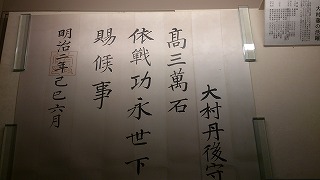 大村丹後守
高三萬石
依戦功永世下
賜候事
明治二年己巳六月